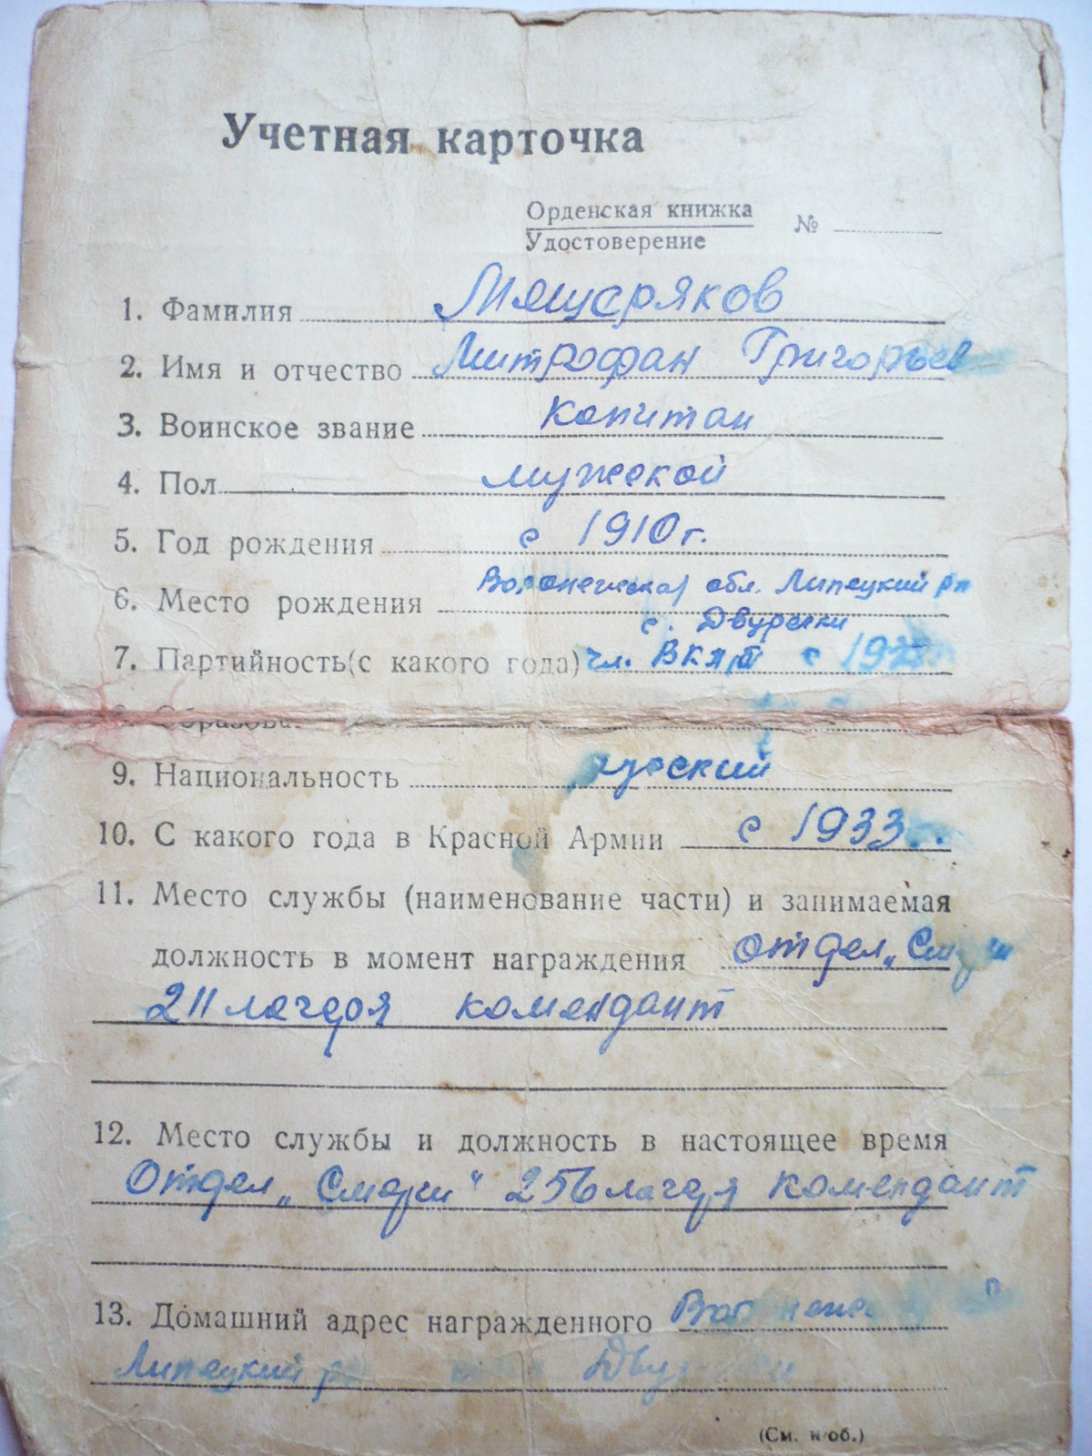 Учетная карточка
Орденская книжка
Удостоверение №
1. Фамилия Мещеряков
2. Имя и отчество Митрофан Григорьев
3. Воинское звание Капитан
4. Пол мужской
5. Год рождения с 1910 г.
6. Место рождения Воронежская обл. Липецкий рн
с. Двуречки
7. Партийность (с какого года) чл. ВКП/б с
8. Образова
9. Национальность русский
10. С какого года в Красной Армии с 1933 г.
11. Место службы (наименование части) и занимаемая
должность в момент награждения отдел „Смерш
211 лагеря комендант
12. Место службы и должность в настоящее время
Отдел „Смерш" 256 лагеря комендант
13. Домашний адрес награжденного
Липецкий рн Двуречки
(См. н/об.)